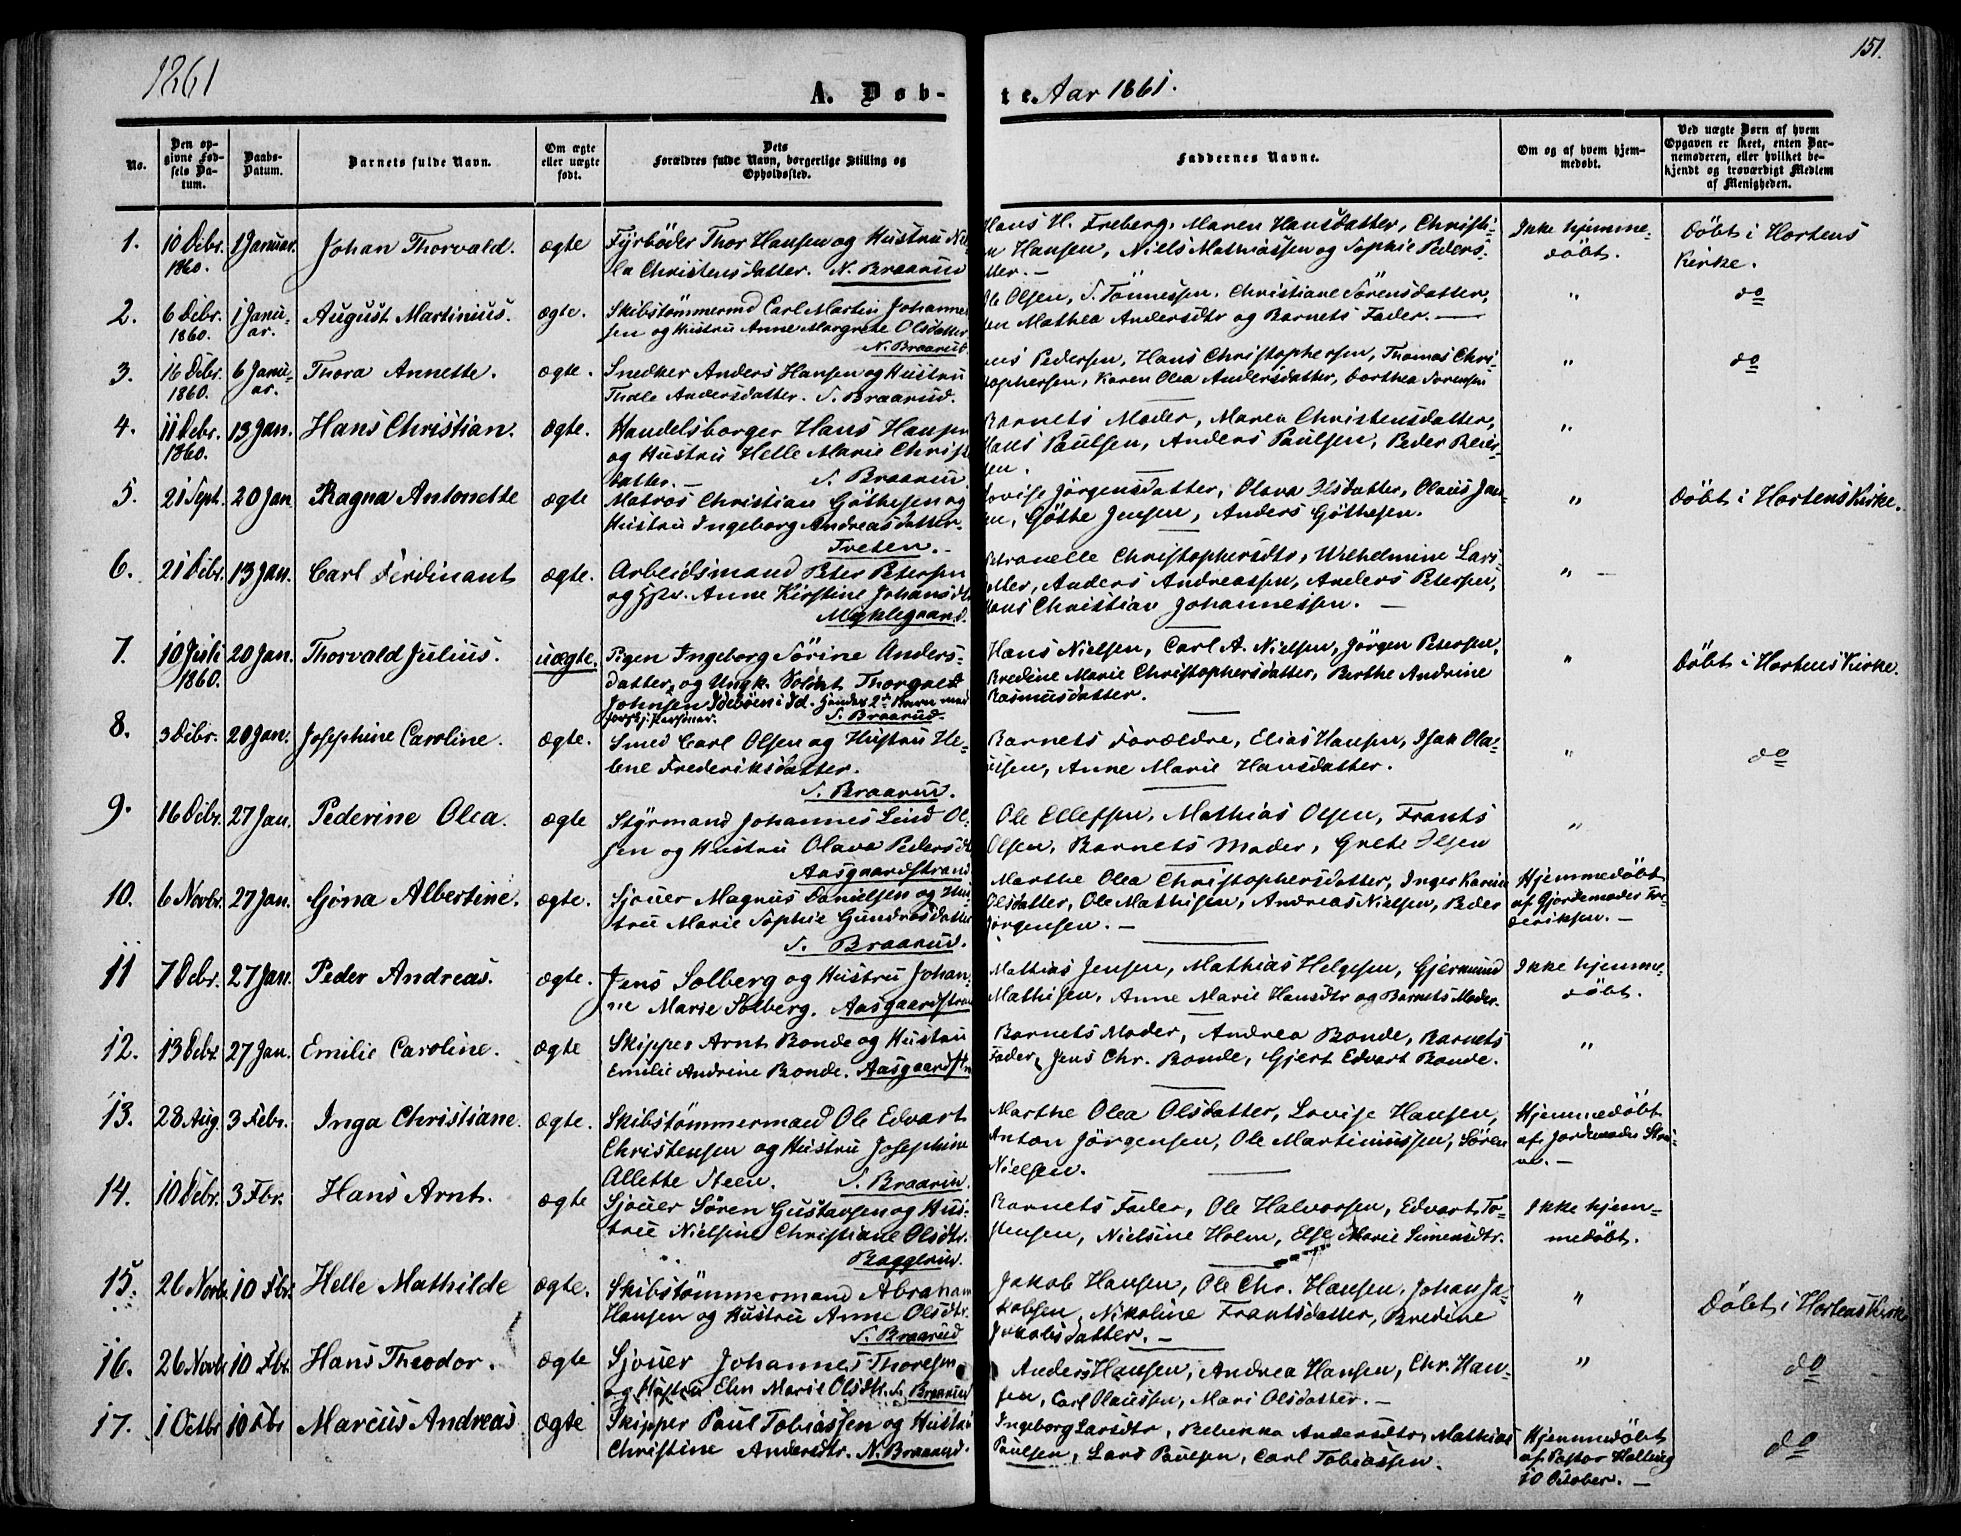 1861
151.
A. Døb-
te. Aar 1861.
No.
Den op-
givne Fød-
sels Da-
tum.
Daabs-
Datum.
Barnets fulde Navn.
Om ægte
eller uægte
født.
Dets
Forældres fulde Navn, borgerlige Stilling og
Opholdssted.
Faddernes Navne.
Om og af hvem hjem-
medøbt.
Ved uægte Børn af hvem
Opgaven er skeet, enten Bar-
nemoderen, eller hvilket be-
kjendt og troværdigt Medlem
af Menigheden.
1. 10 Debr. 1860. 1 Januar. Johan Thorvald. ægte
Fyrböder Thor Hansen og Hustru
la Christensdatter. N. Braarud
Hans H. Freberg, Maren Hansdatter, Christi-
n Hansen, Niels Mathiassen og Sophie Peders-
tter. —
Ikke hjemme-
döbt.
Döbt i Hortens
Kirke.
2. 6 Debr. 1860. 1 Janu-
ar. August Martinius. ægte.
Skibstömmermd Carl Martin Johannes
sen og Hustru Anne Margrete Olsdatter
N. Braarud.
Ole Olsen, S. Tönnessen, Christiane Sörensdatter,
en Mathea Andersdtr og Barnets Fader. —
" do
3. 16 Debr. 1860. 6 Janu-
ar. Thora Annette. ægte.
Snedker Anders Hansen og Hustru
Thale Andersdatter. S. Braarud.
Pedersen, Hans Christophersen, Thomas Chri-
stophersen, Karen Olea Andersdatter, Dorthea Sorensen
" do
4. 11 Debr. 1860. 13 Jan. Hans Christian. ægte.
Handelsborger Hans Hansen
og Hustru Helle Marie Christ
datter. — S. Braarud
Barnets Moder, Maren Christensdatter,
Hans Paulsen, Anders Paulsen, Peder
sen.
"
5. 21 Sept. 20 Jan Ragna Antonette ægte
Matros Christian Göthesen og
Hustru Ingeborg Andreasdatter.
Tveten. -
Lovise Jörgensdatter, Olava Olsdatter, Olaus Jan-
en, Göthe Jensen, Anders Göthesen.
" Döbt i Hortens Kirke.
6. 21 Debr. 13 Jan. Carl Ferdinant ægte.
Arbeidsmand Peter Petersen
og Hstr. Anne Kirstine Johansdt
Myklegaard.
Petronelle Christophersdtr, Wilhelmine Lars-
datter, Anders Andreassen, Anders Petersen,
Hans Christian Johannessen. —
" —
7. 10 Juli 1860. 20 Jan. Thorvald Julius. uægte.
Pigen Ingeborg Sörine Anders-
datter, og Ungk. Soldat Thorvald
Johnsen i Id. Hendes 2t Barn med
forskj. Personer. S. Braarud.
Hans Nielsen, Carl A. Nielsen, Jörgen Petersen,
Bredine Marie Christophersdatter, Berthe Andrine
Rasmusdatter.
" Döbt i Hortens Kirke.
8. 3 Debr. 20 Jan. Josephine Caroline. ægte.
Smed Carl Olsen og Hustru He-
lene Frederiksdatter.
S. Braarud.
Barnets Forældre, Elias Hansen, Isak Ola-
usen, Anne Marie Hansdatter.
" do
9. 16 Debr. 27 Jan. Pederine Olea. ægte
Styrmand Johannes Lind Ol-
sen og Hustru Olava Pedersdt
Aasgaardstrand
Ole Ellefsen, Mathias Olsen, Frants
Olsen, Barnets Moder, Grete Olsen
"
10. 6 Novbr. 27 Jan. Gjöna Albertine. ægte.
Sjouer Magnus Danielsen og Hus
tru Marie Sophie Gundrosdatter
S. Braarud.
Marthe Olea Christophersdatter, Inger Karine
Olsdatter, Ole Mathisen, Andreas Nielsen, Peder
Jörgensen. —
Hjemmedöbt
af Gjordemoder Fre-
deriksen. —
11 7 Debr. 27 Jan. Peder Andreas. ægte.
Jens Solberg og Hustru Johan-
ne Marie Solberg. Aasgaardstran
Mathias Jensen, Mathias Helgesen, Gjermund
Mathisen, Anne Marie Hansdtr og Barnets Moder.
Ikke hjemme-
döbt.
12. 13 Debr. 27 Jan. Emilie Caroline. ægte
Skipper Arnt Bonde og Hustru
Emilie Andrine Bonde. Aasgaardstr
Barnets Moder, Andrea Bonde, Barnets
Fader, Jens Chr. Bonde, Gjert Edvart Bonde.
"
13. 28 Aug. 3 Febr. Inga Christiane. ægte.
Skibstömmermand Ole Edvart
Christensen og Hustru Josephine
Allette Steen. S. Braarud.
Marthe Olea Olsdatter, Lovise Hansen,
Anton Jörgensen, Ole Martiniussen, Sören
Nielsen.
Hjemmedöbt
af Jordemoder
14. 10 Debr. 3 Fbr. Hans Arnt. ægte
Sjouer Sören Gustavsen og Hus-
tru Nielsine Christiane Olsdtr.
Baggerud.
Barnets Fader, Ole Halvorsen, Edvart To-
Jensen, Nielsine Holm, Else Marie Simensdtr.
Ikke hjem-
medöbt.
15. 26 Novbr. 10 Fbr. Helle Mathilde ægte.
Skibstömmermand Abraham
Hansen og Hustru Anne Olsdtr.
S. Braarud
Jakob Hansen, Ole Chr. Hansen, Johan Ja-
kobsen, Nikoline Frantsdatter, Bredine
Jakobsdatter. —
" Döbt i Hortens Kirke
16. 26 Novbr 10 Fbr. Hans Theodor. ægte
Sjouer Johannes Thoresen
og Hustru Elen Marie Olsdtr. S. Braarud
Anders Hansen, Andrea Hansen, Chr. Han-
sen, Carl Olaussen, Mari Olsdatter. —
" do
17. 1 Octbr 10 Fbr Marcus Andreas ægte
Skipper Paul Tobiassen og Hustru
Christine Andersdtr. N. Braarud.
Ingeborg Larsdtr, Rebekka Andersdtr, Mathias
Paulsen, Lars Paulsen, Carl Tobiassen.
Hjemmedöbt
af Pastor Hellweg
10 October. —
do